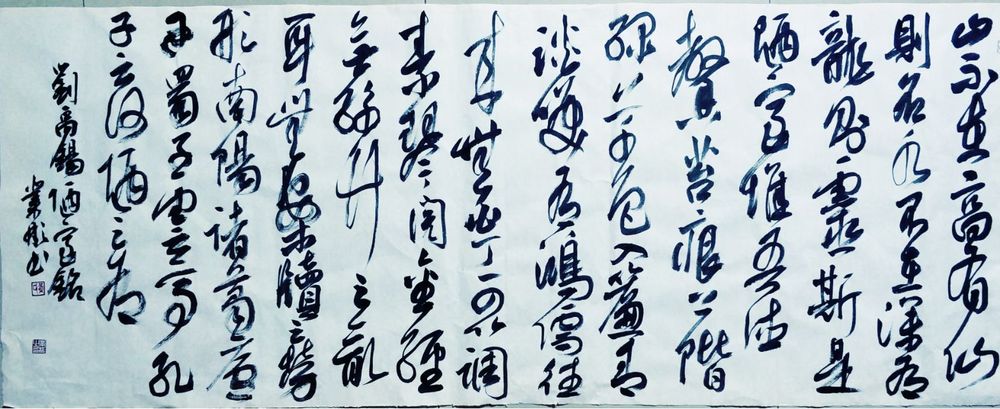 山不在高有仙
則名水不在深有
龍則靈斯是
陋室惟吾德
馨苔痕上階
綠草色入簾青
談笑有鴻儒往
來無白丁可以調
素琴閱金經
無絲竹之亂
耳無案牘之勞
形南陽諸葛廬
西蜀子雲亭孔
子云何陋之有
劉禹錫陋室銘